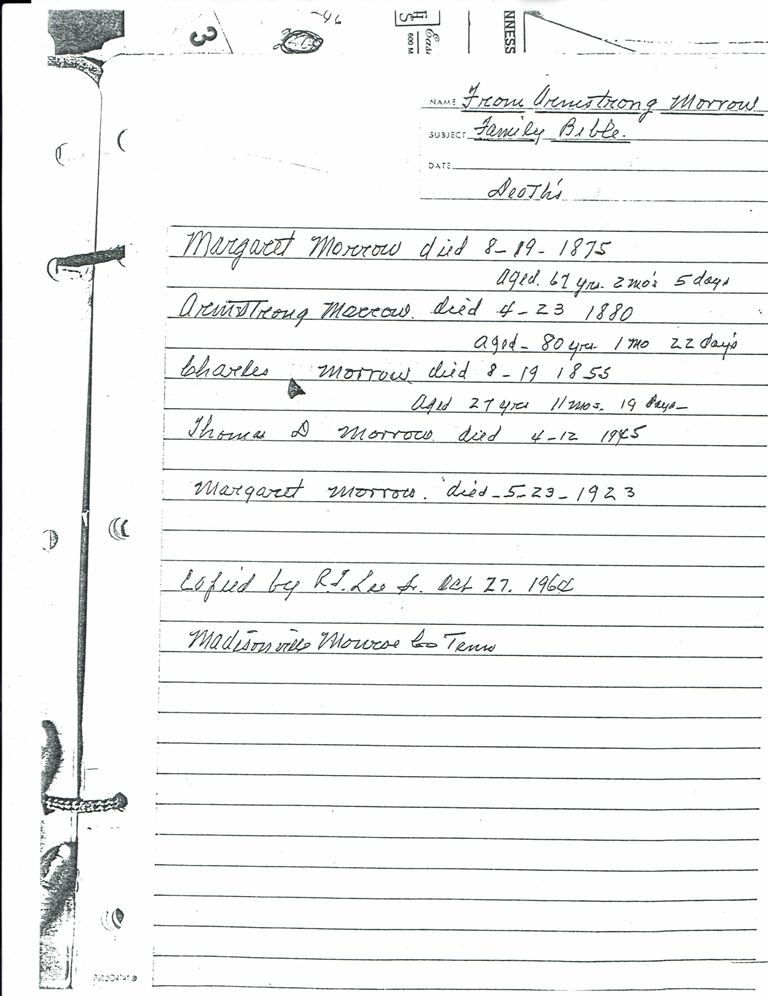 3
NNESS
600 M
NAME From Armstrong Morrow
SUBJECT Family Bible.
DATE
Death's
Margaret Morrow died 8-19-1875
aged. 67 yrs. 2 mo's 5 days
Armstrong Morrow. died 4-23 1880
aged - 80 yrs 1 mo 22 day's
Charles Morrow died 8-19 1855
Aged 27 yrs 11 mos. 19 days
Thomas D Morrow died 4-12 1945
Margaret Morrow. died-5-23-1923
Copied by R.T. Lee Sr. Oct 27. 196
Madisonville Monroe Co Tenn